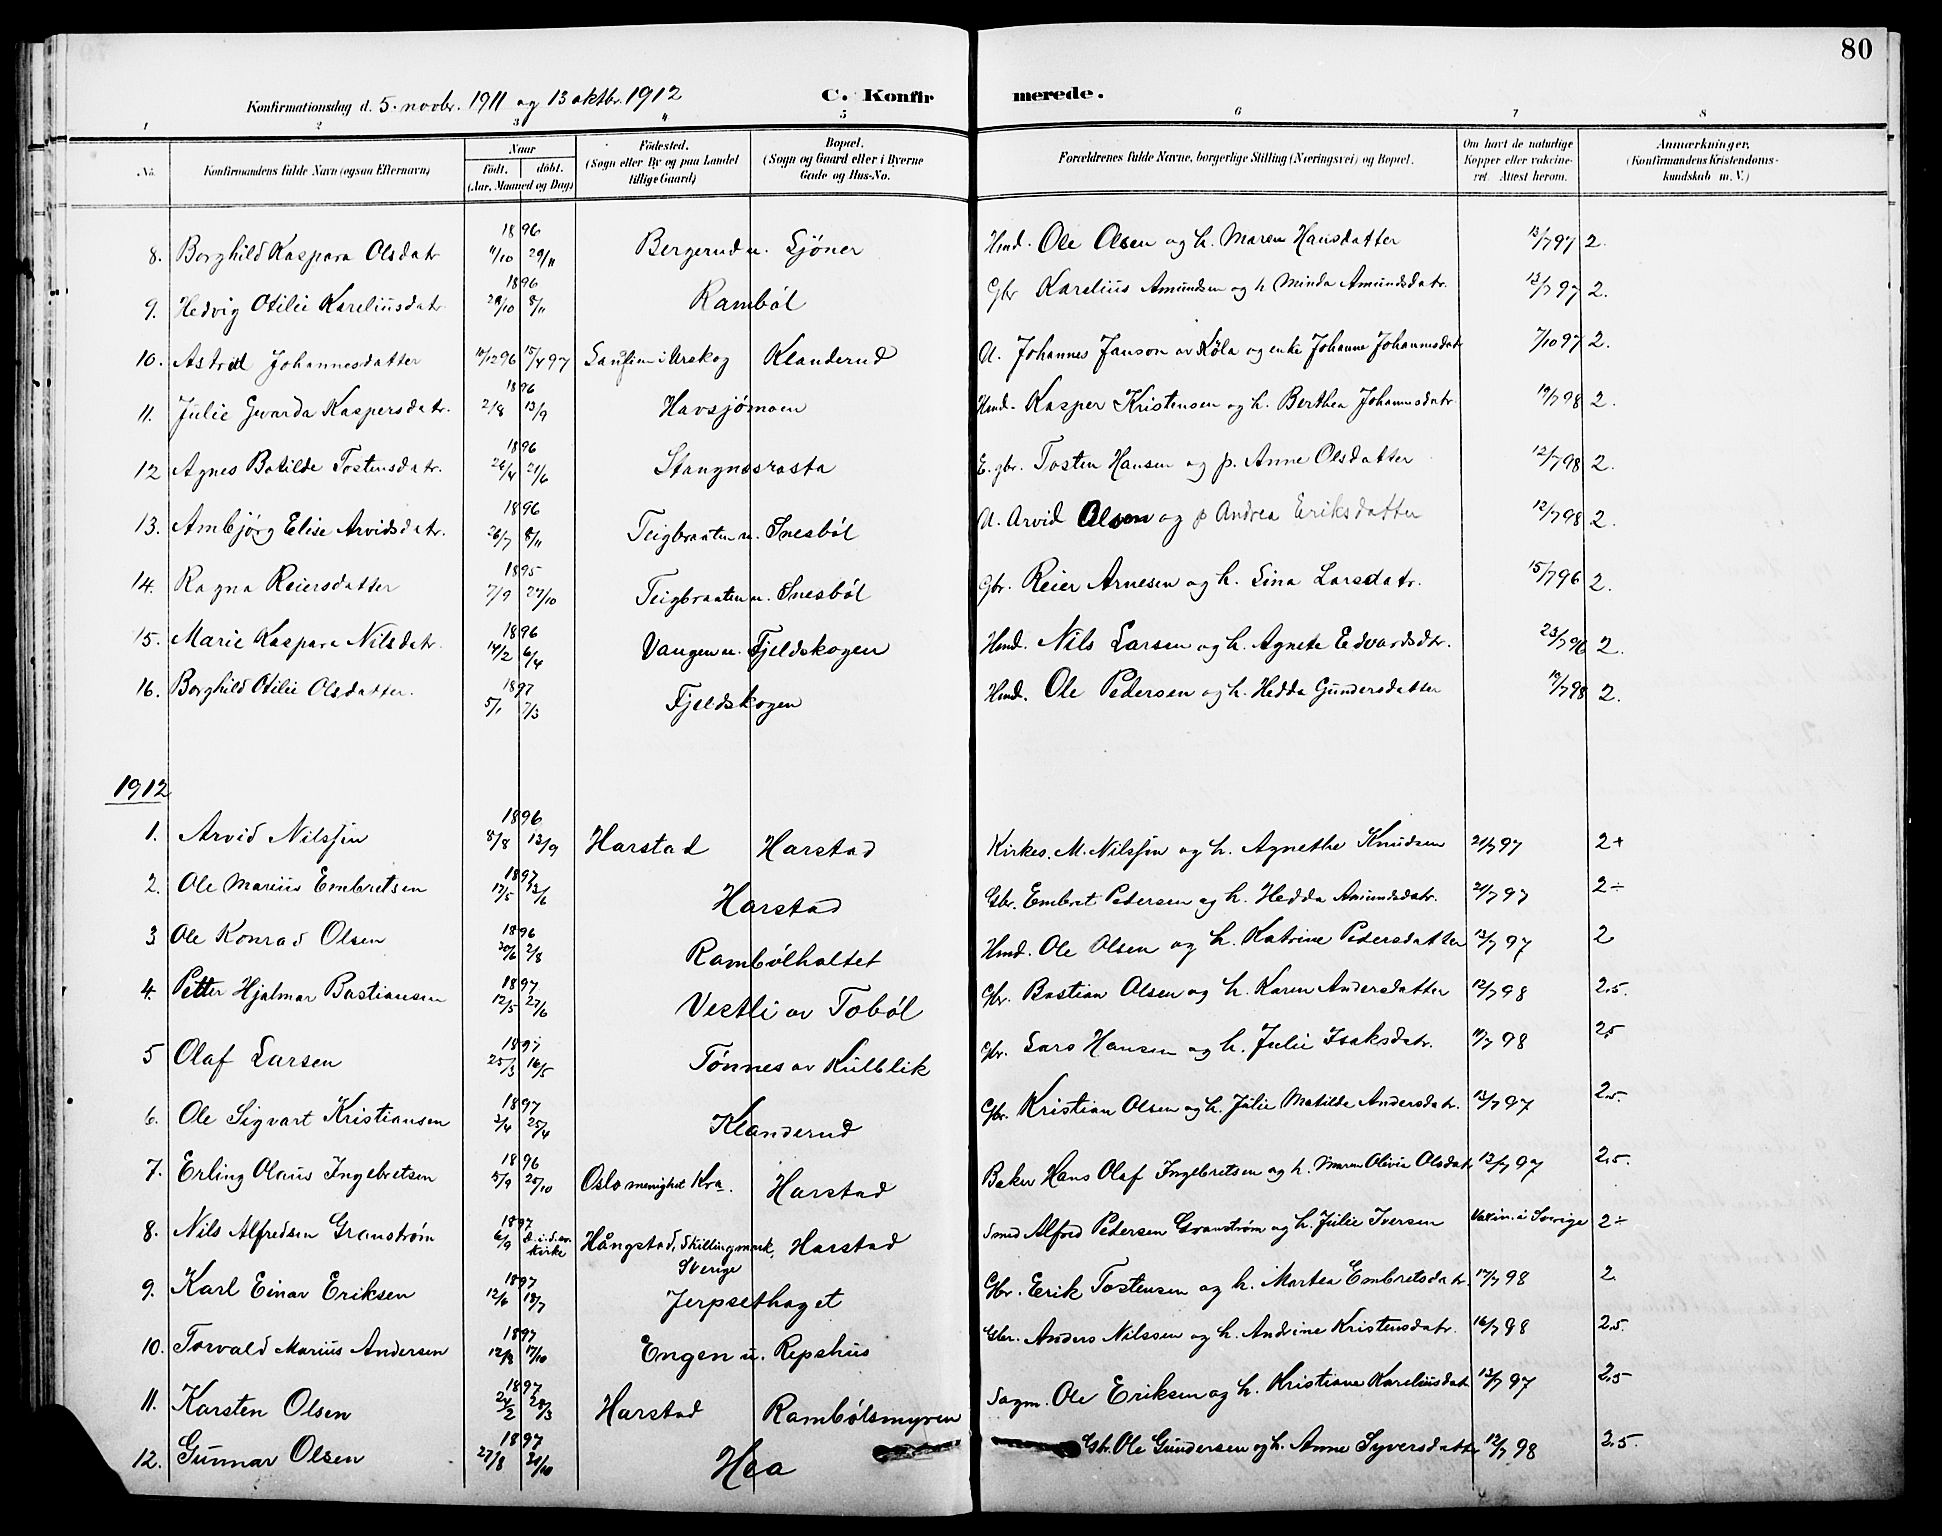 80
Konfirmationsdag d. 5. novbr. 1911 og 13 oktbr. 1912 C. Konfir merede.
1 2 3 4 5 6 7 8
No. Konfirmandens fulde Navn (ogsaa Efternavn) Naar födt. döbt. (Aar, Maaned og Dag) Födested. (Sogn eller By og paa Landet tillige Gaard) Bopæl. (Sogn og Gaard eller i Byerne Gade og Hus-No. Forældrenes fulde Navne, borgerlige Stilling (Næringsvei) og Bopæl. Om havt de naturlige Kopper eller vaccineret. Attest herom. Anmærkninger, (Konfirmandens Kristendomskundskab m. V.)
8. Borghild Kaspara Olsdatr 1896 4/10 29/11 Bergerud u. Sjöner Hmd. Ole Olsen og h. Maren Hansdatter 13/7 97 2.
9. Hedvig Otilie Kareliusdatr. 1896 29/10 8/11 Ramböl Gbr Karelius Amundsen og h Minda Amundsdatr. 13/7 97 2.
10. Astrid Johannesdatter 10/12 96 15/4 97 i Urskog Klanderud A. Johannes Janson av Köla og enke Johanne Johannesdatr 7/10 97 2.
11. Julie Gvarda Kaspersdatr. 1896 2/8 13/9 Havsjömoen Hmd. Kasper Kristensen og h. Berthea Johannesdatr 19/7 98 2.
12 Agnes Botilde Tostensdatr. 1896 26/4 21/6 Stangnesrasta E. gbr. Tosten Hansen og p. Anne Olsdatter 12/7 98 2.
13. Ambjörg Elise Arvidsdatr. 1896 26/7 8/11 Teigbraaten u. Snesböl A. Arvid Olsen og p Andrea Eriksdatter 12/7 98 2.
14. Ragna Reiersdatter 1895 7/9 27/10 Teigbraaten u. Snesböl Gbr. Reier Arnesen og h. Lina Larsdatr. 15/7 96 2.
15. Marie Kaspara Nilsdatr. 1896 14/2 6/4 Vangen u. Fjeldskogen Hmd. Nils Larsen og h. Agnete Edvardsdtr. 23/7 96 2.
16. Borghild Otilie Olsdatter. 1897 5/1 7/3 Fjeldskogen Hmd. Ole Pedersen og h. Hedda Gundersdatter 12/7 98 2.
1912
1. Arvid Nilssen 1896 8/8 13/9 Harstad Harstad Kirkes. M. Nilssen og h. Agnethe Knudsen 21/7 97 2+
2. Ole Marius Embretsen 1897 17/5 13/6 Harstad Gbr. Embret Pedersen og h. Hedda Amundsdatr. 21/7 97 2÷
3 Ole Konrad Olsen 1896 30/6 2/8 Rambölholtet Hmd. Ole Olsen og h. Katrine Pedersdatter 13/7 97 2
4. Petter Hjalmar Bastiansen 1897 12/5 27/6 Vestli av Toböl Gbr. Bastian Olsen og h. Karen Andersdatter 12/7 98 2.5.
5 Olaf Larsen 1897 25/3 16/5 Tønnes av Kulblik Gbr. Lars Hansen og h. Julie Isaksdatr. 11/7 98 2.5
6. Ole Sigvart Kristiansen 1897 2/4 25/4 Klanderud Gbr. Kristian Olsen og h. Julie Matilde Andersdatr. 13/7 97 2.5.
7. Erling Olaus Ingebretsen 1896 5/9 25/10 Oslo menighet Kra. Harstad Baker Hans Olaf Ingebretsen og h. Maren Olivia Olsdatr 13/7 97 2.5.
8. Nils Alfredsen Granstrøm 1897 6/9 kirke Hångstad, Skillingmark, Sverige Harstad Smed Alfred Pedersen Granstrøm og h. Julie Iversen Vaxin. i Sverige 2÷
9. Karl Einar Eriksen 1897 12/6 18/7 Jerpsethaget Gbr. Erik Tostensen og h. Martea Embretsdatr 17/7 98 2.
10. Torvald Marius Andersen 1897 12/8 17/10 Engen u. Repshus Gbr. Anders Nilssen og h. Andrine Kristensdatr. 16/7 98 2.5.
11. Karsten Olsen 1897 24/2 28/3 Harstad Rambölsmyren Sagm. Ole Eriksen og h. Kristiane Kareliusdatr 13/7 97 2.5
12. Gunnar Olsen 1897 27/8 31/10 Hea Gbr. Ole Gundersen og h. Anne Syversdatter 12/7 98 2.5.